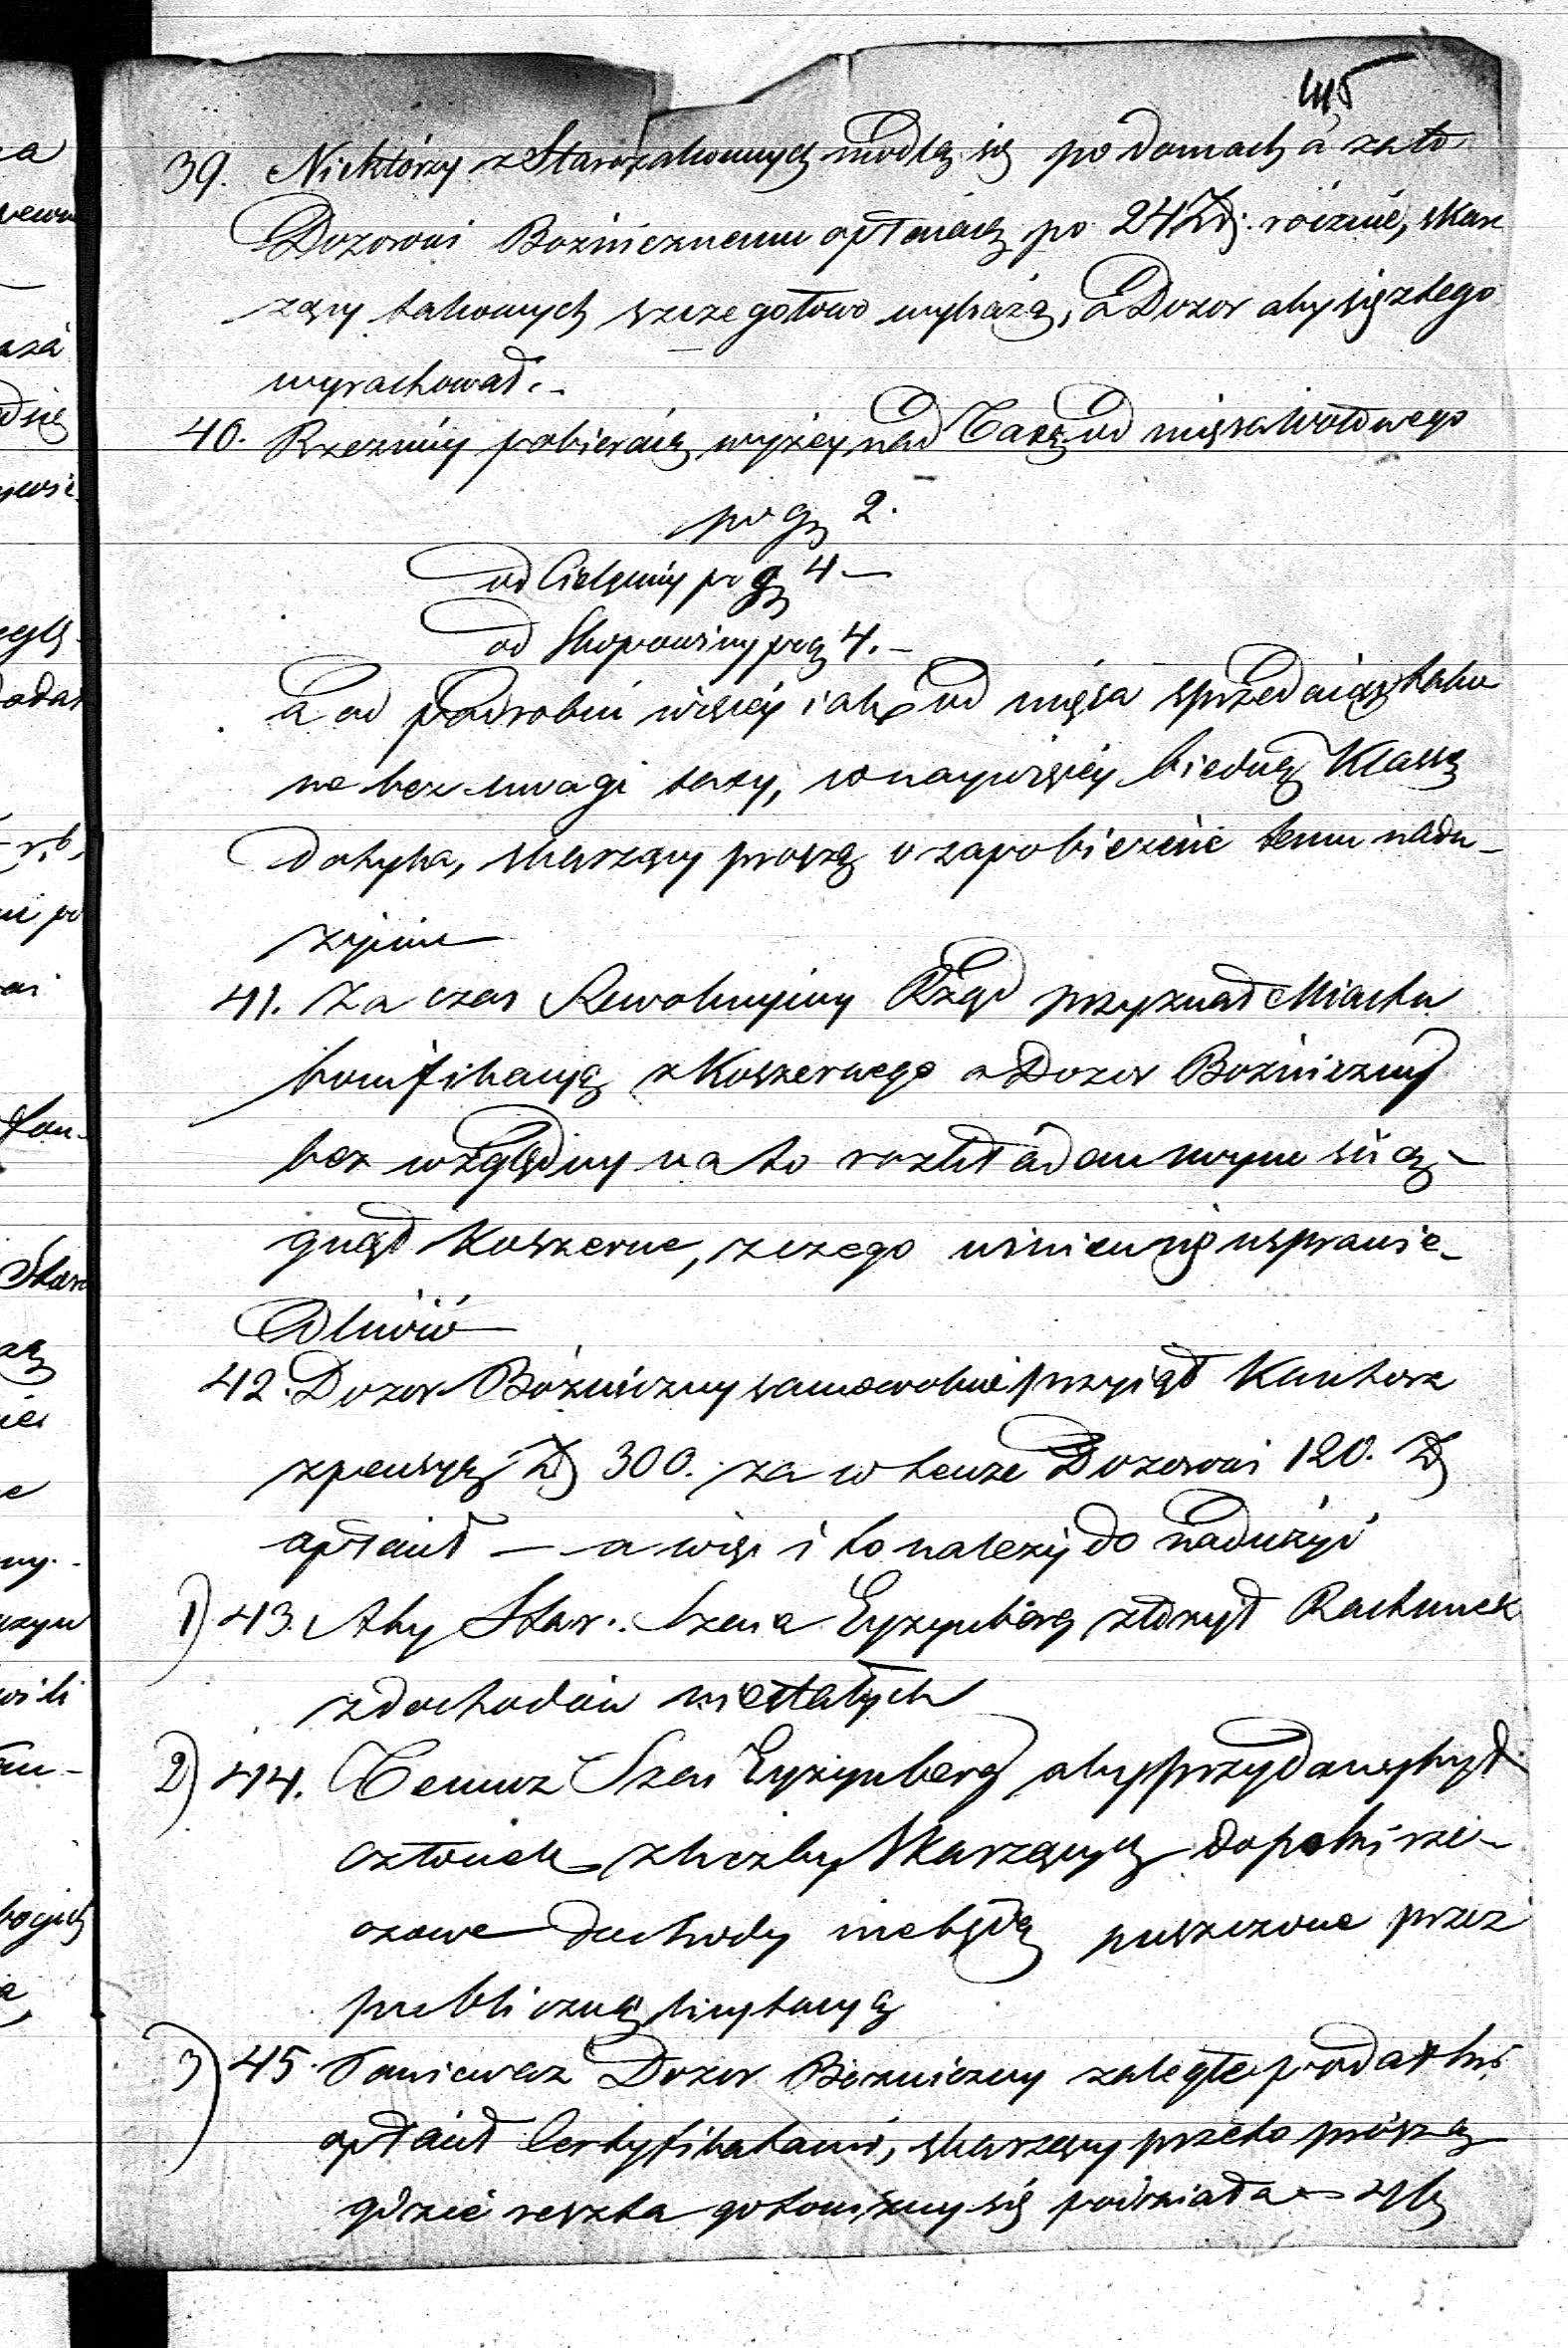 415
39. Niektórzy z Starozakonnych modlą się po domach a za to
Dozorowi Bożnicznemu opłacaią po 24 Złł. rocznie, skar
zący takowych szczegołowo wykażą, a Dozor aby się z tego
wyrachował.-
40. Rzeznicy pobieraią wyżey nad Taxę od mięsa wołowego
po gr 2.
od Cielęciny po gr 4 —
od Skopowiny po gr 4. -
a od podrobiu więcey iak od mięsa sprzedaiąc tako
we bez uwagi taxy, co naywięcey biedną Klassę
dotyka, skarzący proszą o zapobieżenie temu nadu-
życiu
41. Za czas Rewolucyiny Rząd przyznał Miastu
bonifikacyą z Koszernego a Dozor Bożniczny
bez względny na to rozkładem swym ścią-
gnął Koszerne, z czego winien się usprawie-
dliwić
42. Dozor Bożniczny samowolnie przyiął Kantora
z pensyą Zł 300. za co tenże Dozorowi 120. Zł
opłacił — a więc i to należy do nadużyć
1) 43. Aby Star. Szaia Eyzynberg złożył Rachunek
z dochodów niestałych
2) 44. Temuż Szai Eyzynberg aby przydanym był
członek z liczby Skarzących dopoki rze-
czone dochody niebędą puszczone przez
publiczną licytacyą
3) 45. Ponieważ Dozor Bożniczny zaległe podatki
opłacił Certyfikatami, skarzący przeto proszą
gdzie reszta gotowizny się podziała